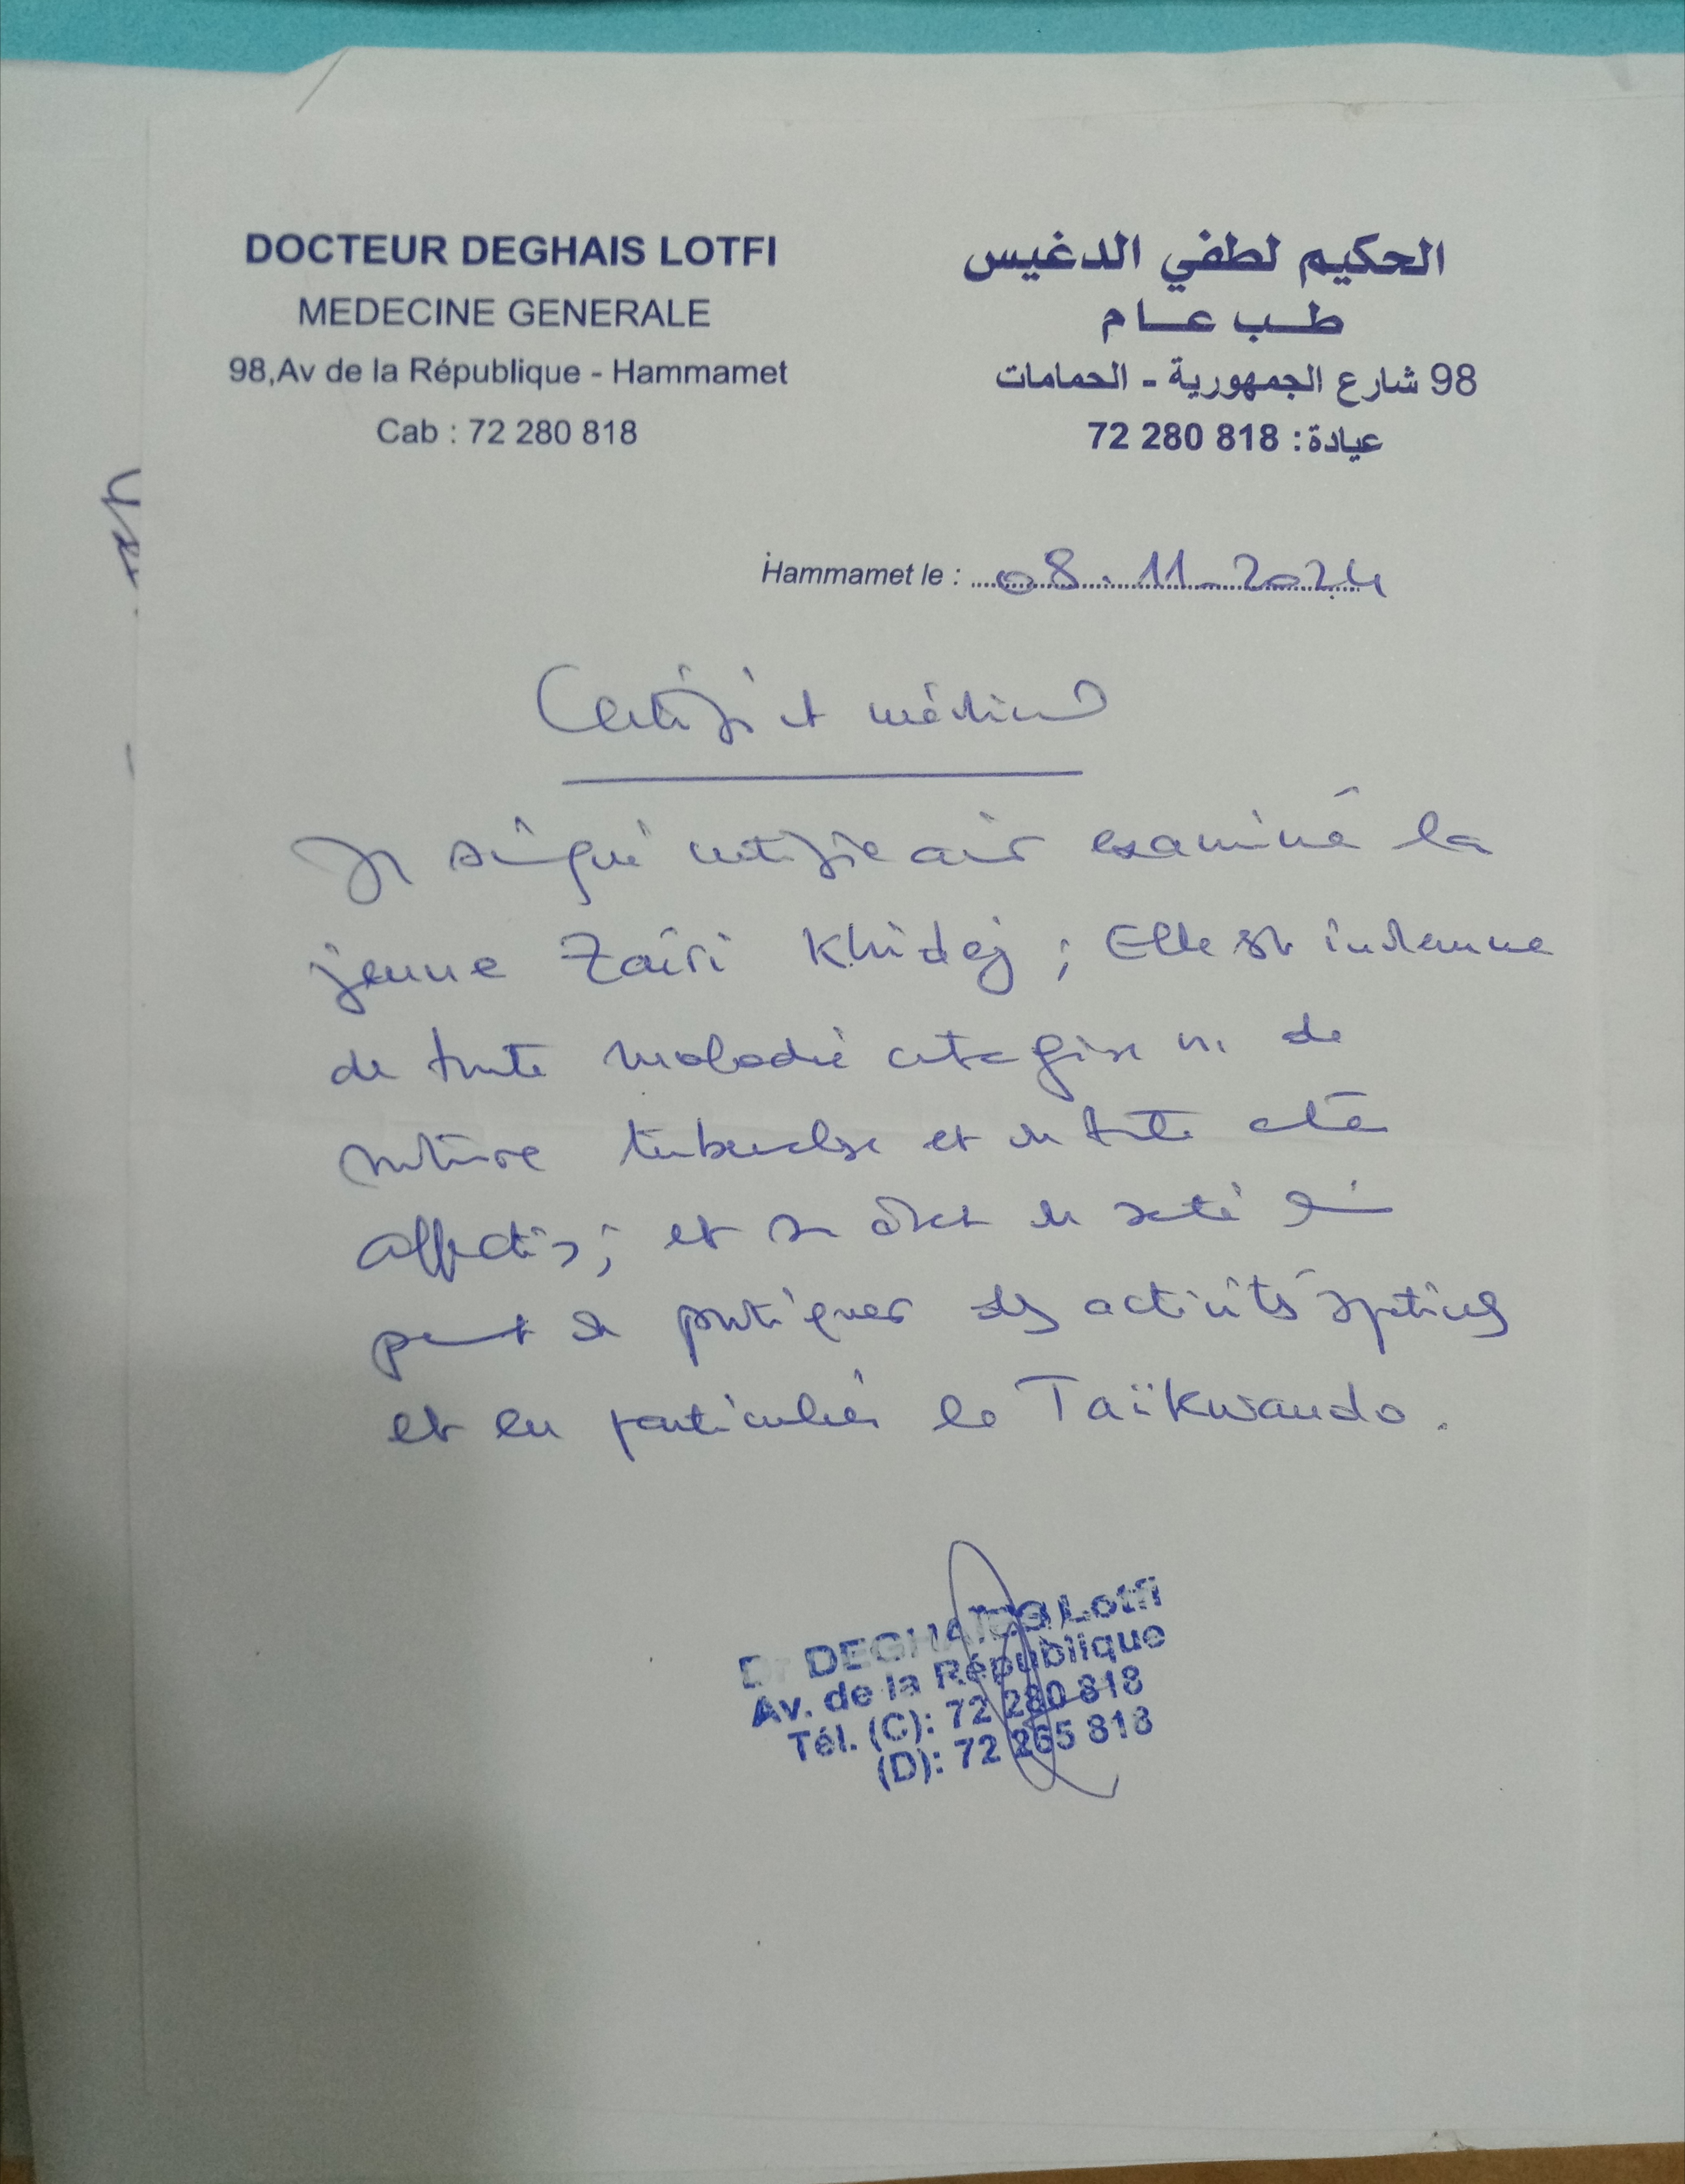 DOCTEUR DEGHAIS LOTFI
MEDECINE GENERALE
98,Av de la République - Hammamet
Cab : 72 280 818
الحكيم لطفي الدغيس
طب عام
98 شارع الجمهورية - الحمامات
عيادة: 818 280 72
Hammamet le : 08.11.2024
Certificat médical
Je soussigné certifie avoir examiné la
jeune Zaïri Khidej ; Elle est indemne
de toute maladie contagieuse ni de
nature tuberculose et de toute
affection; et son état de santé lui
permet de pratiquer des activités sportives
et en particulier le Taïkwando.
Dr DEGHAIES Lotfi
Av. de la République
Tél. (C): 72 280 818
(D): 72 265 818